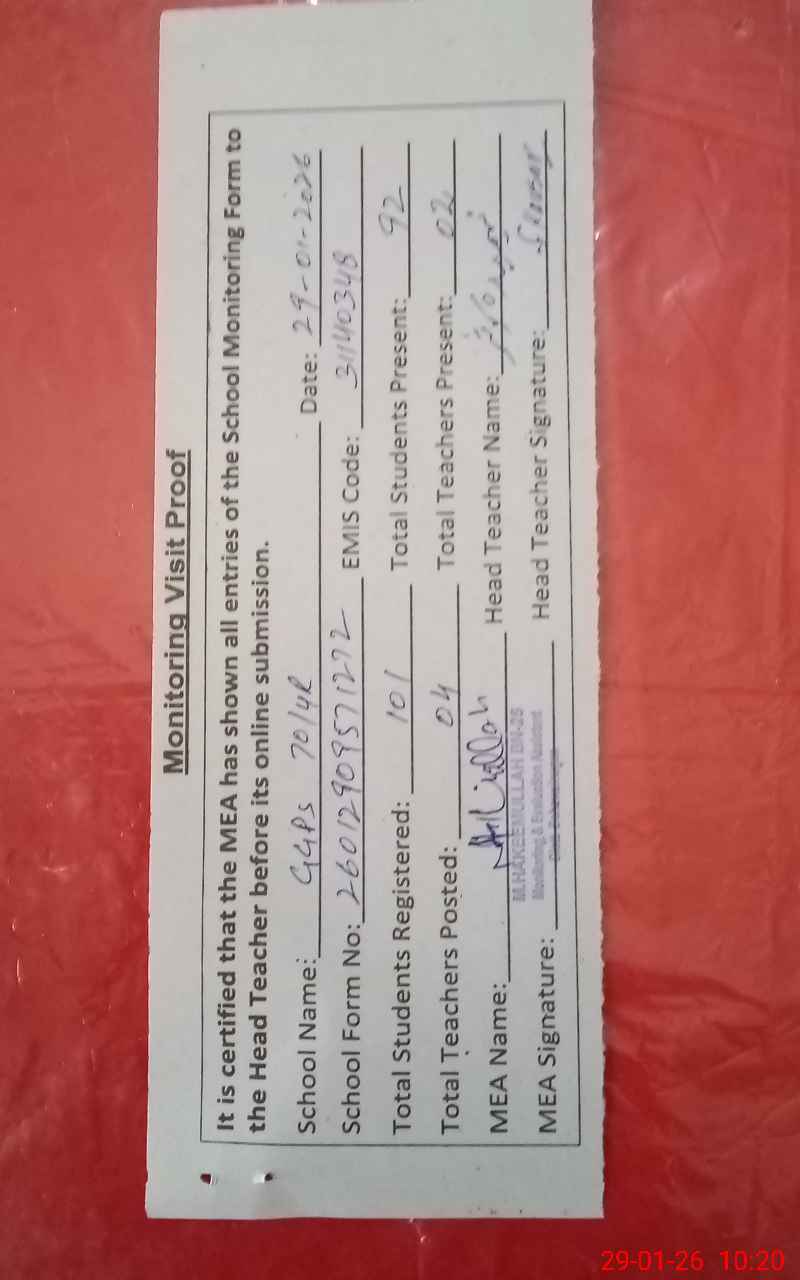 Monitoring Visit Proof
It is certified that the MEA has shown all entries of the School Monitoring Form to
the Head Teacher before its online submission.
School Name: GGPS 70/4R Date: 29-01-2026
School Form No: 26012909571272 EMIS Code: 31140348
Total Students Registered: 101 Total Students Present: 92
Total Teachers Posted: 04 Total Teachers Present: 02
MEA Name: Head Teacher Name:
M.HAKEEMULLAH DN-25
Monitoring & Evaluation Assistant
MEA Signature: Head Teacher Signature:
29-01-26 10:20